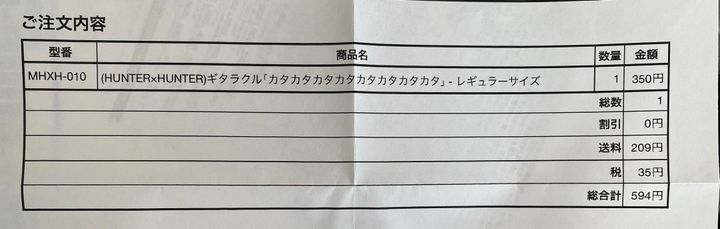 ご注文内容
型番 商品名 数量 金額
MHXH-010 (HUNTER×HUNTER)ギタラクル「カタカタカタカタカタカタカタカタ」- レギュラーサイズ 1 350円
総数 1
割引 0円
送料 209円
税 35円
総合計 594円